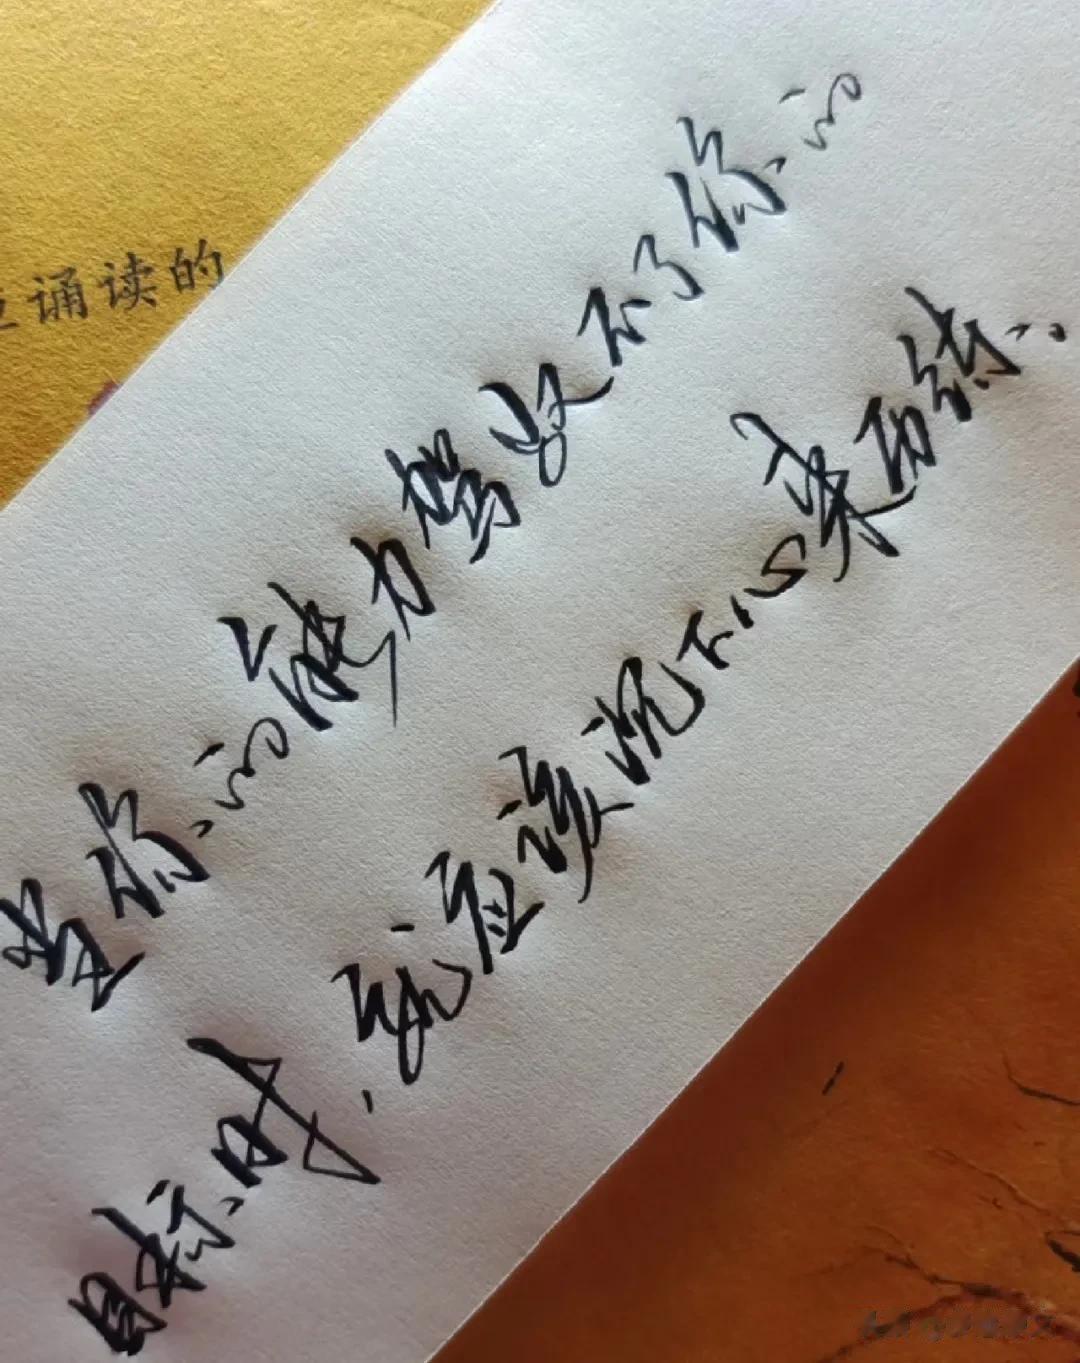 诵读的
当你的能力驾驭不了你的
目标时，就应该沉下心来历练..